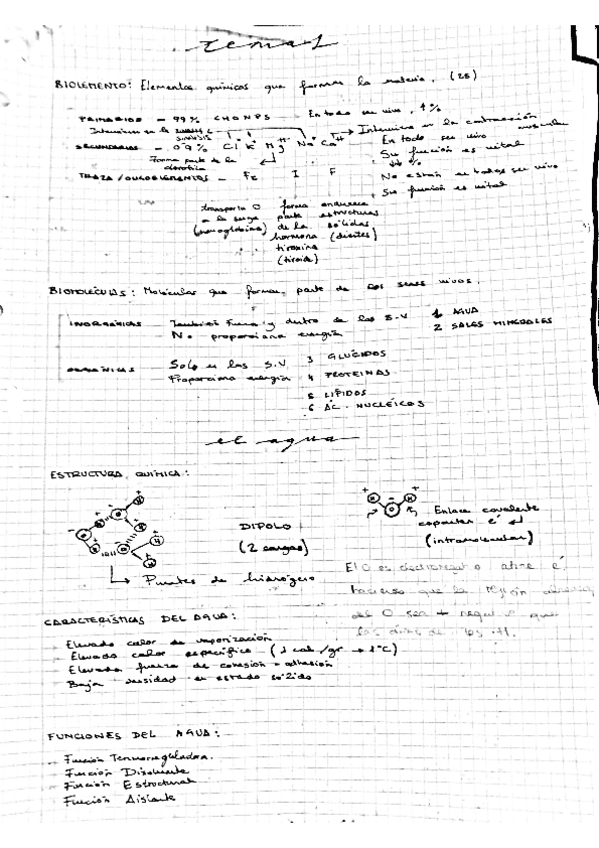 tema 1
BIOLEMENTO: Elementos químicos que forman la materia. (25)
PRIMARIOS - 99% CHONPS En todo ser vivo, 4%
Intervienen en la Interviene en la contracción muscular
SECUNDARIOS - 0'9% Cl K Mg Na Ca En todo ser vivo
Su función es vital
Forma parte de la
TRAZA/OLIGOELEMENTOS - Fe I F No están en todos ser vivo
Su función es vital
transporta O forma endurece
en la sangre parte estructuras
(hemoglobina) de la sólidas
hormona (dientes)
tiroxina
(tiroides)
BIOMOLÉCULAS: Moléculas que forman parte de los seres vivos.
INORGÁNICAS También fuera y dentro de los S.V 1 AGUA
No proporciona energía 2 SALES MINERALES
ORGÁNICAS Solo en los S.V 3 GLÚCIDOS
Proporciona energía 4 PROTEINAS
5 LÍPIDOS
6 ÁC. NUCLÉICOS
el agua
ESTRUCTURA QUÍMICA:
DIPOLO
(2 cargas)
Puentes de hidrógeno
Enlace covalente
comparten é
(intramolecular)
El O es electronegativo atrae é
haciendo que la región
del O sea + negativo que
los de los H.
CARACTERÍSTICAS DEL AGUA:
- Elevado calor de vaporización
- Elevado calor específico (1 cal/gr → 1ºC)
- Elevada fuerza de cohesión - adhesión
- Baja densidad en estado sólido
FUNCIONES DEL AGUA:
- Función Termorreguladora.
- Función Disolvente
- Función Estructural
- Función Aislante